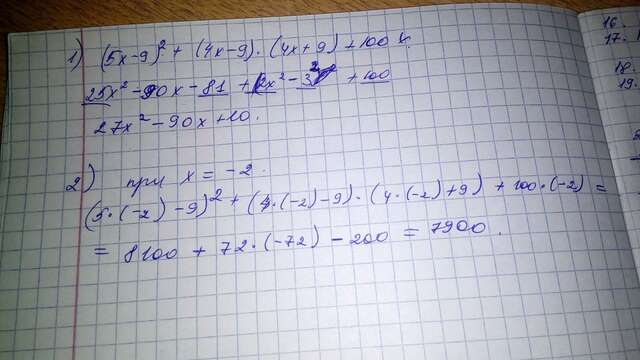 1) (5x-9)² + (4x-9)·(4x+9) + 100 x
25x² - 90x - 81 + 2x² - 3² + 100
27x² - 90x + 10.
2) при x = -2.
(5·(-2) - 9)² + (4·(-2) - 9)·(4·(-2) + 9) + 100·(-2) =
= 8100 + 72·(-72) - 200 = 7900.
16.
17.
18.
19.